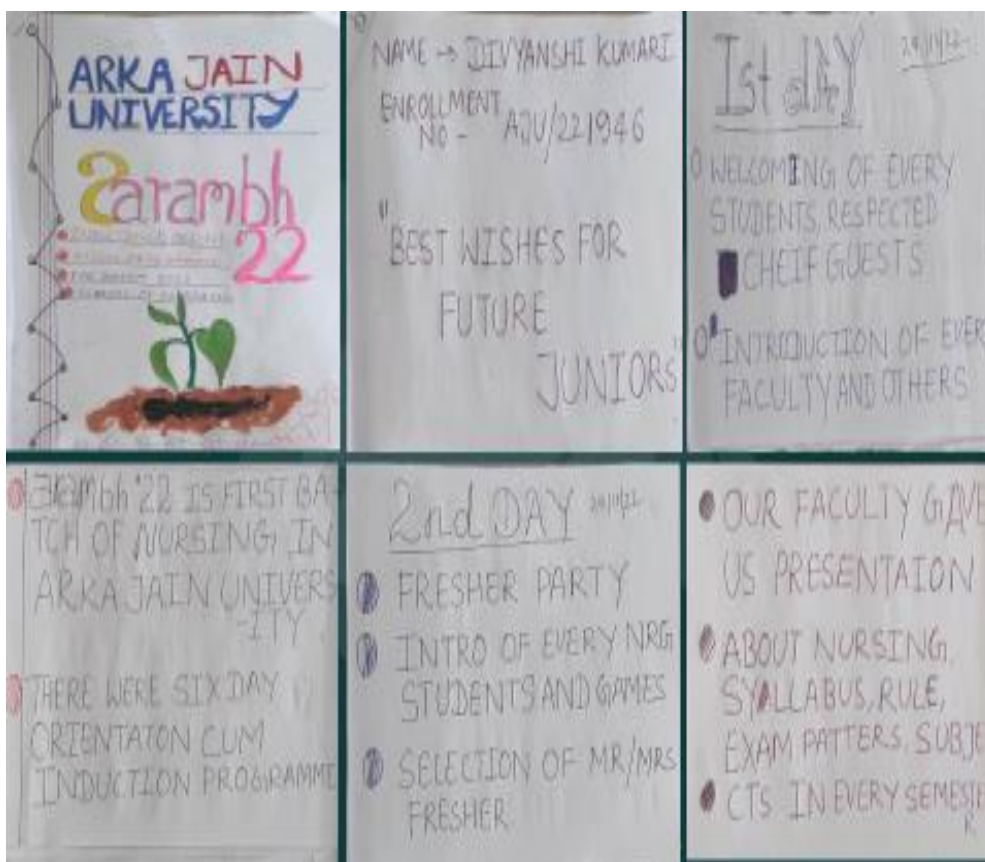 ARKA JAIN
UNIVERSITY
arambh
22
NAME → DIVYANSHI KUMARI
ENROLLMENT
NO - AJU/221946
"BEST WISHES FOR
FUTURE
JUNIORS"
Ist dAY
WELCOMING OF EVERY
STUDENTS, RESPECTED
CHEIF GUESTS
INTRODUCTION OF EVER
FACULTY AND OTHERS
arambh '22 IS FIRST BA-
TCH OF NURSING IN
ARKA JAIN UNIVERS
-ITY
THERE WERE SIX DAY
ORIENTATON CUM
INDUCTION PROGRAMME
2nd DAY
FRESHER PARTY
INTRO OF EVERY NRG
STUDENTS AND GAMES
SELECTION OF MR/MRS
FRESHER
OUR FACULTY GAVE
US PRESENTAION
ABOUT NURSING,
SYALLABUS, RULE,
EXAM PATTERS, SUBJE
CTS IN EVERY SEMESTE
R